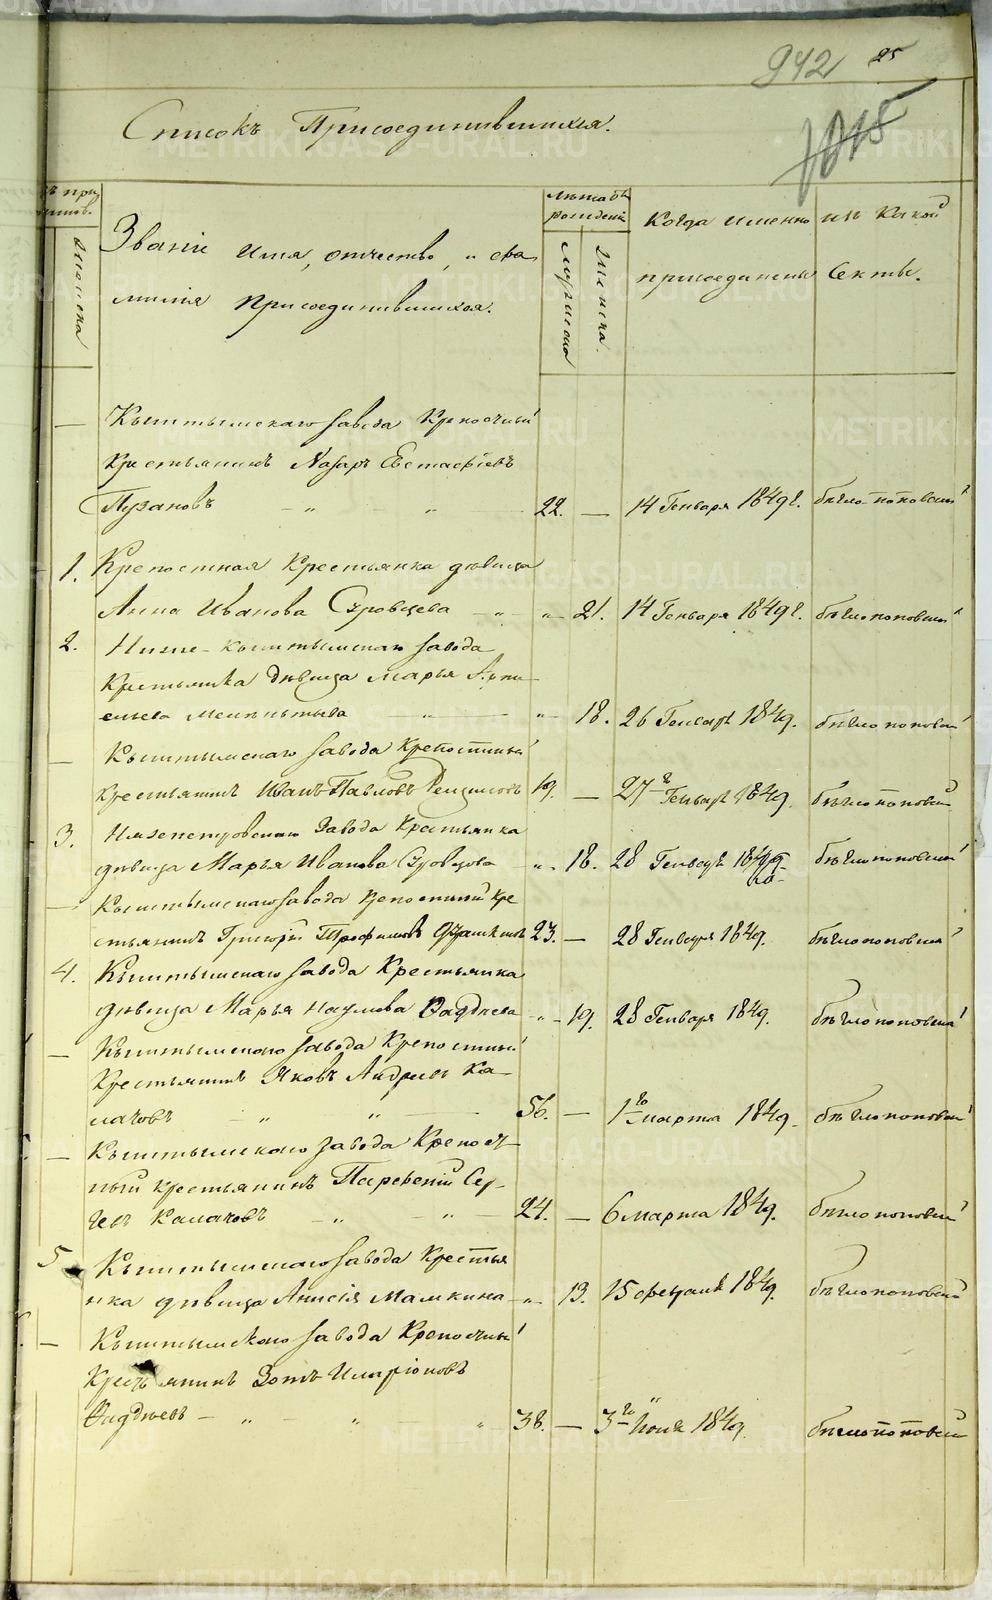 942 25
1015
Списокъ Присоединившихся.
Женска
Званіе имя, отчество, и фа
милія Присоединившихся.
лета отъ
рожденія
мужеска
Женска.
Когда именно
присоединены
изъ Какой
Секты.
— Кыштымскаго завода Крепосный
Крестьянинъ Назаръ Евстафіевъ
Пузановъ — „ — „ 22. — 14 Генваря 1849 г. бѣглопоповской
1. Крепостная Крестьянка дѣвица
Анна Иванова Суровцева — „ — „ 21. 14 Генваря 1849 г. бѣглопоповской
2. Ниже-Кыштымскаго завода
Крестьянка Дѣвица Марья
— „ — „ 18. 26 Генваря 1849. бѣглопоповской
— Кыштымскаго завода Крепостный
крестьянинъ Иванъ Павловъ 19. — 27 Генваря 1849. бѣглопоповской
3. Нязепетровскаго Завода Крестьянка
дѣвица Марья Иванова Суровцова „ 18. 28 Генваря 1849 бѣглопоповской
— Кыштымскаго завода Крепостный Кре
стьянинъ Григорій Трофимовъ 23. — 28 Генваря 1849. бѣглопоповской
4. Кыштымскаго завода Крестьянка
дѣвица Марья Наумова — „ — 19. 28 Генваря 1849. бѣглопоповской
— Кыштымскаго завода Крепостный
Крестьянинъ Яковъ Андреевъ Ка-
лачовъ — „ — „ — 56. — 1го марта 1849. бѣглопоповской
— Кыштымскаго завода Крепост-
ный крестьянинъ Парфеній Сер-
геевъ Калачовъ — „ — „ — 24. — 6 марта 1849. бѣглопоповской
5. Кыштымскаго завода Крестья
нка дѣвица Анисія Мамкина — „ 13. 15 февраля 1849. бѣглопоповской
— Кыштымскаго завода Крепосный
Крестьянинъ Зотъ Иларіоновъ
— „ — „ „ 38. — 3го Іюня 1849. бѣглопоповской
METRIKI.GASO-URAL.RU